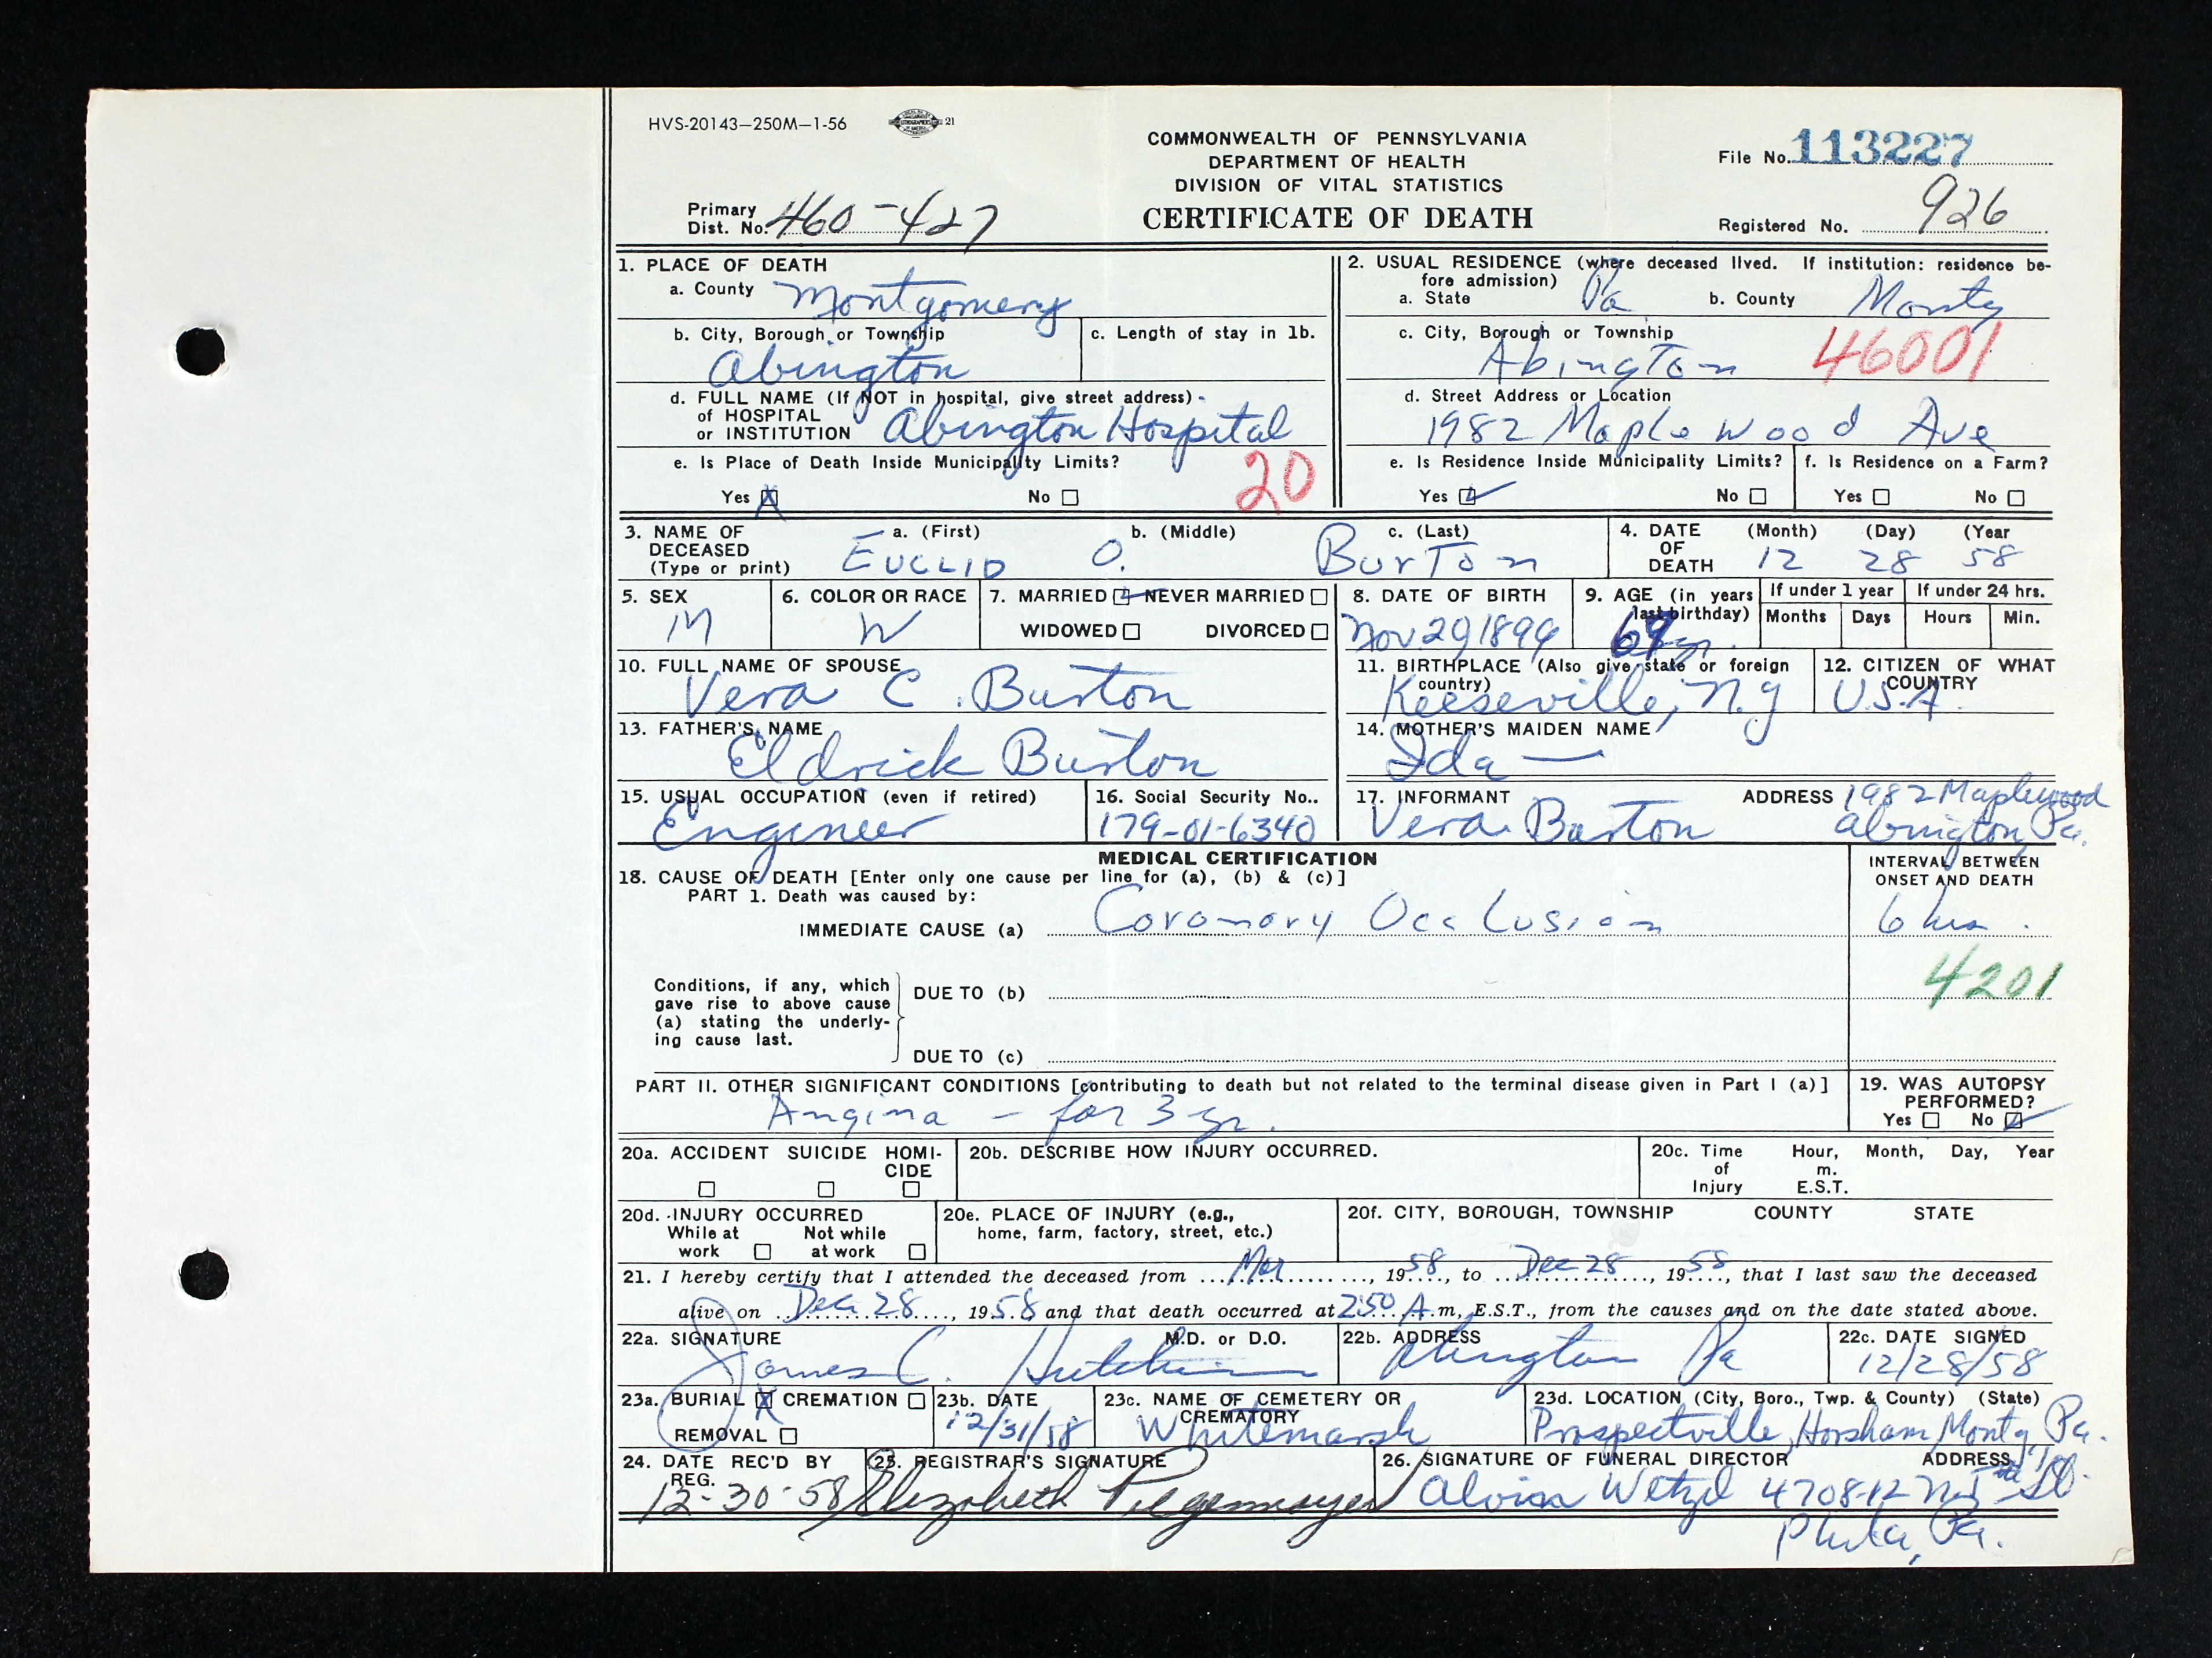 HVS-20143—250M—1-56
21
COMMONWEALTH OF PENNSYLVANIA
DEPARTMENT OF HEALTH
DIVISION OF VITAL STATISTICS
CERTIFICATE OF DEATH
File No. 113227
Primary
Dist. No. 460-427
Registered No. 926
1. PLACE OF DEATH
a. County Montgomery
b. City, Borough or Township
Abington
c. Length of stay in 1b.
d. FULL NAME (If NOT in hospital, give street address)
of HOSPITAL
or INSTITUTION Abington Hospital
e. Is Place of Death Inside Municipality Limits?
20
Yes X No
2. USUAL RESIDENCE (where deceased lived. If institution: residence be-
fore admission)
a. State Pa b. County Monty
c. City, Borough or Township
Abington 46001
d. Street Address or Location
1982 Maplewood Ave
e. Is Residence Inside Municipality Limits? f. Is Residence on a Farm?
Yes No Yes No
3. NAME OF DECEASED (Type or print) a. (First) b. (Middle) c. (Last)
EUCLID O. Burton
4. DATE OF DEATH (Month) (Day) (Year
12 28 58
5. SEX
M
6. COLOR OR RACE
W
7. MARRIED NEVER MARRIED
WIDOWED DIVORCED
8. DATE OF BIRTH
Nov. 29 1899
9. AGE (in years
last birthday)
If under 1 year If under 24 hrs.
Months Days Hours Min.
10. FULL NAME OF SPOUSE
Vera C. Burton
11. BIRTHPLACE (Also give state or foreign
country)
Keeseville, N.Y
12. CITIZEN OF WHAT
COUNTRY
U.S.A.
13. FATHER'S NAME
Eldrick Burton
14. MOTHER'S MAIDEN NAME
Ida —
15. USUAL OCCUPATION (even if retired)
Engineer
16. Social Security No..
179-01-6340
17. INFORMANT ADDRESS 1982 Maplewood
Vera Burton Abington, Pa.
MEDICAL CERTIFICATION
18. CAUSE OF DEATH [Enter only one cause per line for (a), (b) & (c)]
PART 1. Death was caused by:
IMMEDIATE CAUSE (a) Coronary Occlusion
INTERVAL BETWEEN
ONSET AND DEATH
6 hrs.
4201
Conditions, if any, which
gave rise to above cause
(a) stating the underly-
ing cause last.
DUE TO (b)
DUE TO (c)
PART II. OTHER SIGNIFICANT CONDITIONS [contributing to death but not related to the terminal disease given in Part I (a)]
Angina — for 3 yr.
19. WAS AUTOPSY
PERFORMED?
Yes No
20a. ACCIDENT SUICIDE HOMI-
CIDE
20b. DESCRIBE HOW INJURY OCCURRED.
20c. Time Hour, Month, Day, Year
of m.
Injury E.S.T.
20d. INJURY OCCURRED
While at Not while
work at work
20e. PLACE OF INJURY (e.g.,
home, farm, factory, street, etc.)
20f. CITY, BOROUGH, TOWNSHIP COUNTY STATE
21. I hereby certify that I attended the deceased from Mar, 1958, to Dec 28, 1958, that I last saw the deceased
alive on Dec. 28, 1958 and that death occurred at 2:50 A.m, E.S.T., from the causes and on the date stated above.
22a. SIGNATURE M.D. or D.O.
James C.
22b. ADDRESS
Abington Pa
22c. DATE SIGNED
12/28/58
23a. BURIAL X CREMATION
REMOVAL
23b. DATE
12/31/58
23c. NAME OF CEMETERY OR
CREMATORY
Whitemarsh
23d. LOCATION (City, Boro., Twp. & County) (State)
Prospectville, Horsham Montg, Pa.
24. DATE REC'D BY
REG.
12-30-58
25. REGISTRAR'S SIGNATURE
Elizabeth
26. SIGNATURE OF FUNERAL DIRECTOR ADDRESS
Wetzel 4708-12 N. 5th St.
Phila, Pa.